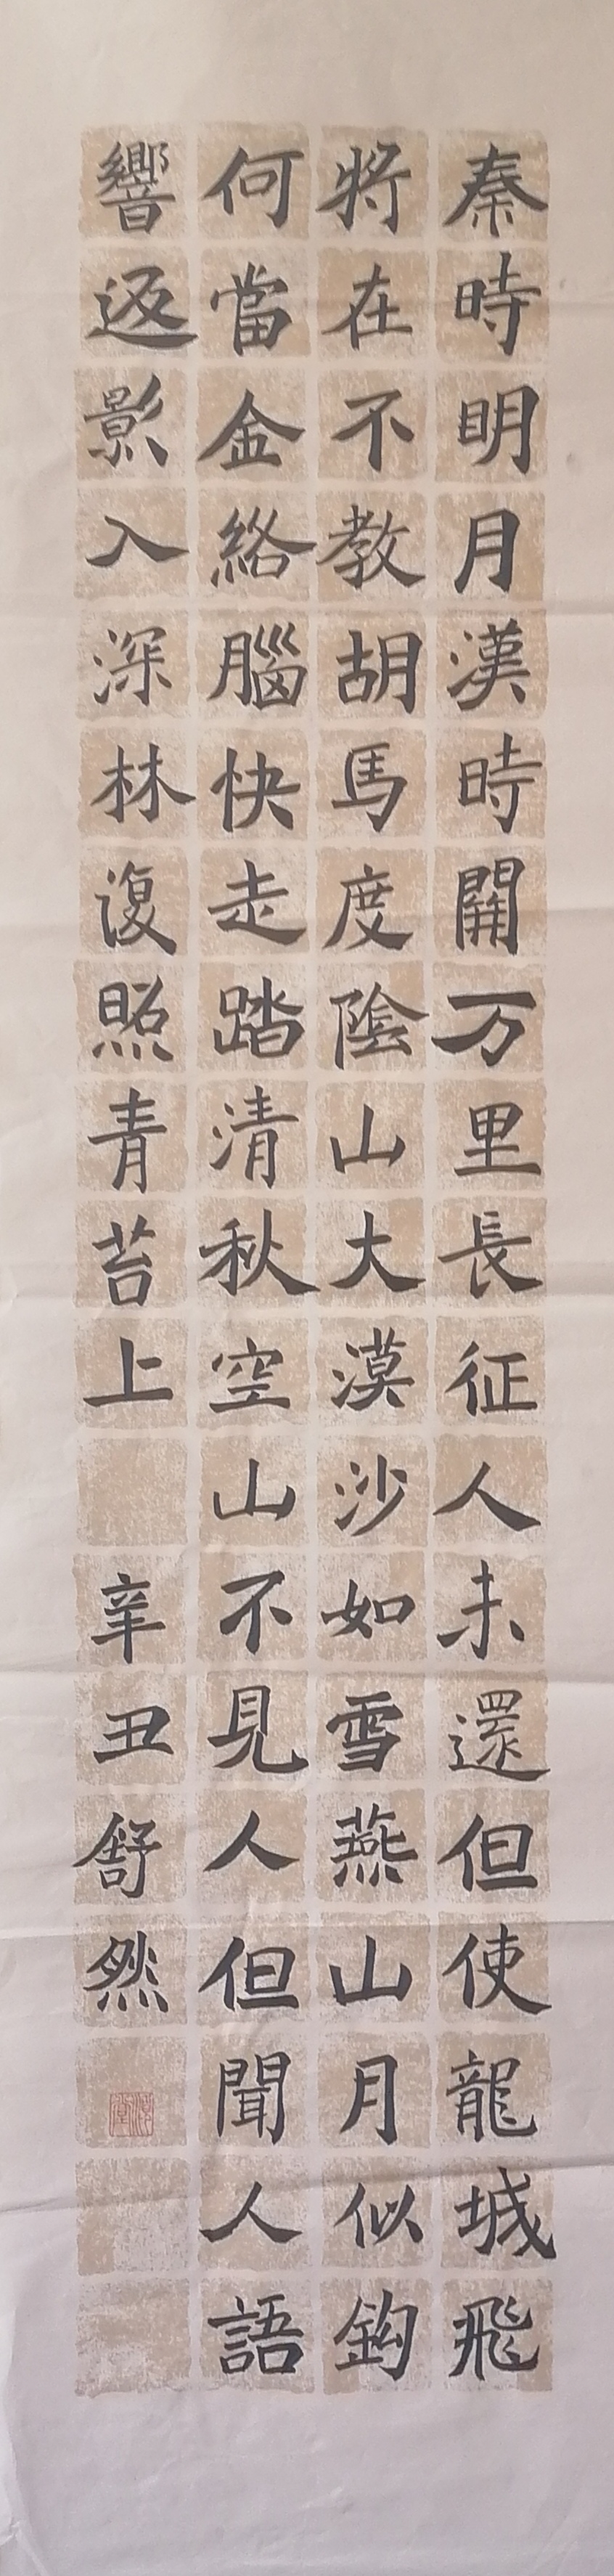 秦時明月漢時關万里長征人未還但使龍城飛
將在不教胡馬度陰山大漠沙如雪燕山月似鈎
何當金絡腦快走踏清秋空山不見人但聞人語
響返影入深林復照青苔上 辛丑舒然